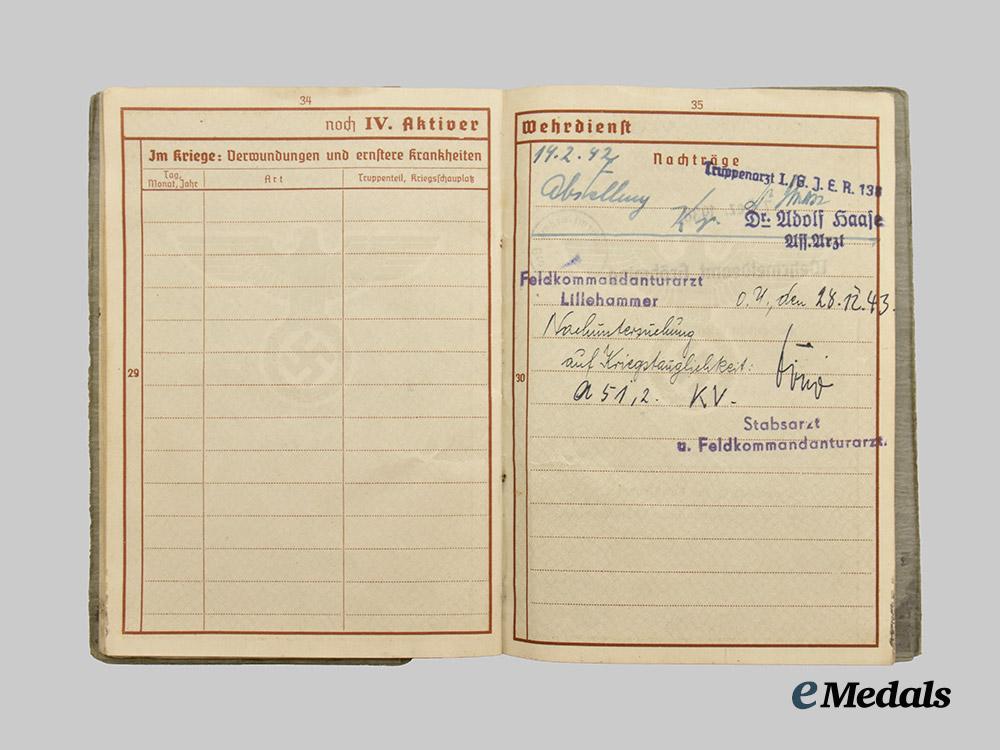 34
noch IV. Aktiver
Im Kriege: Verwundungen und ernstere Krankheiten
Tag, Monat, Jahr
Art
Truppenteil, Kriegsschauplatz
29
35
Wehrdienst
Nachträge
14.2.42
Truppenarzt I./G. J. E. R. 138
Abstellung
Dr. Adolf Haase
Ass. Arzt
Feldkommandanturarzt
Lillehammer
O. U., den 28.12.43.
Nachuntersuchung
auf Kriegstauglichkeit:
30
A 51,2. KV.
Stabsarzt
u. Feldkommandanturarzt.
eMedals